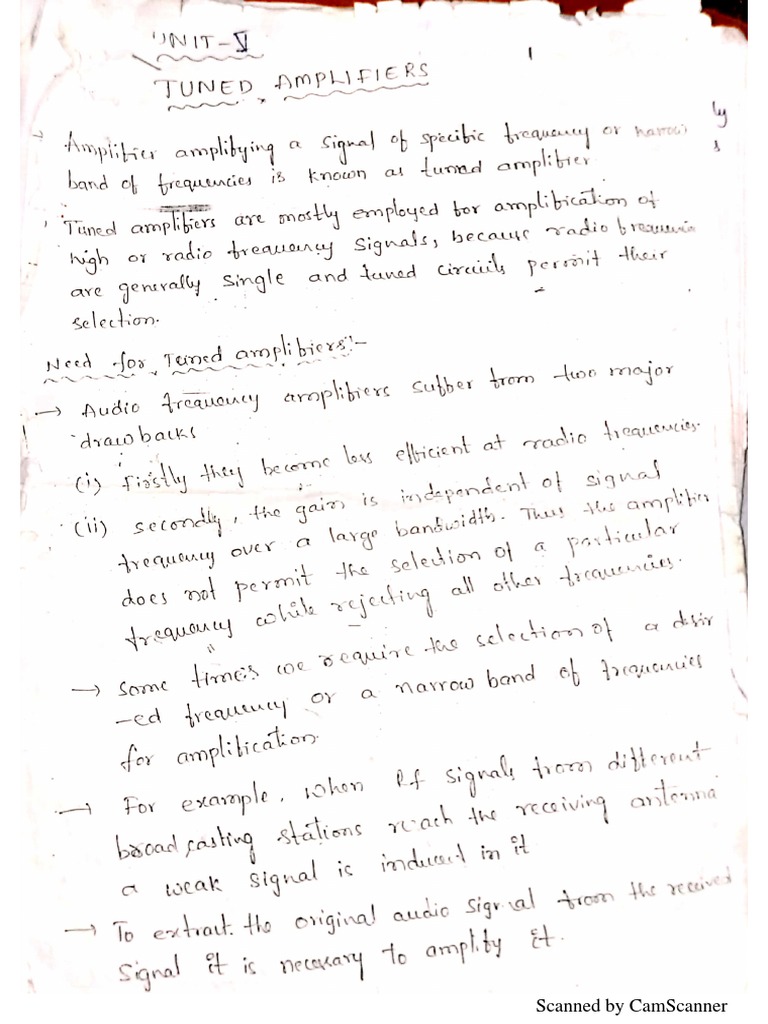 UNIT-V
1
TUNED AMPLIFIERS
ly
→ Amplifier amplifying a signal of specific frequency or narrow
s
band of frequencies is known as tuned amplifier.
Tuned amplifiers are mostly employed for amplification of
high or radio frequency signals, because radio frequencies
are generally single and tuned circuits permit their
selection.
Need for Tuned amplifiers:-
→ Audio frequency amplifiers suffer from two major
drawbacks
(i) Firstly they become less efficient at radio frequencies.
(ii) secondly, the gain is independent of signal
frequency over a large bandwidth. Thus the amplifier
does not permit the selection of a particular
frequency while rejecting all other frequencies.
→ some times we require the selection of a desir
-ed frequency or a narrow band of frequencies
for amplification.
→ For example, when Rf signals from different
broad casting stations reach the receiving antenna
a weak signal is induced in it
→ To extract the original audio signal from the received
signal it is necessary to amplify it.
Scanned by CamScanner